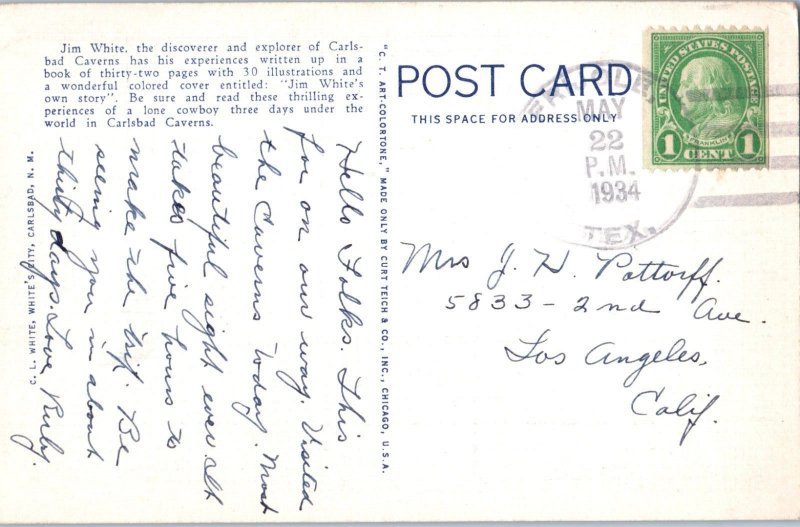 Jim White, the discoverer and explorer of Carls-
bad Caverns has his experiences written up in a
book of thirty-two pages with 30 illustrations and
a wonderful colored cover entitled: "Jim White's
own story". Be sure and read these thrilling ex-
periences of a lone cowboy three days under the
world in Carlsbad Caverns.
Hello Folks. This
for on our way. Visited
the Caverns today. Most
beautiful sight ever. It
takes five hours to
make the trip. Be
seeing you in about
thirty days. Love Ruby.
C. L. WHITE, WHITE'S CITY, CARLSBAD, N. M.
"C. T. ART-COLORTONE," MADE ONLY BY CURT TEICH & CO., INC., CHICAGO, U.S.A.
POST CARD
THIS SPACE FOR ADDRESS ONLY
MAY
22
P.M.
1934
TEX.
UNITED STATES POSTAGE
FRANKLIN
1 CENT 1
Mrs J. H. Pottorff.
5833-2nd Ave.
Los Angeles,
Calif.